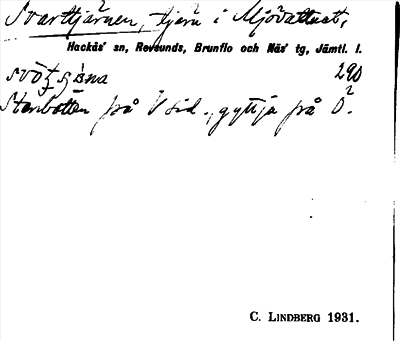 Svarttjärnen, tjärn i Mjövattnet,
Hackås sn, Revsunds, Brunflo och Näs tg, Jämtl. l.
290
Stenbotten på V sid., gyttja på Ö.
C. LINDBERG 1931.